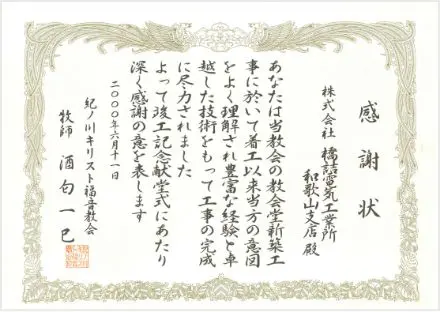 感謝状
株式会社 橋詰電気工業所
和歌山支店 殿
あなたは当教会の教会堂新築工
事に於いて着工以来当方の意図
をよく理解され豊富な経験と卓
越した技術をもって工事の完成
に尽力されました
よって竣工記念献堂式にあたり
深く感謝の意を表します
二〇〇〇年六月十一日
紀ノ川キリスト福音教会
牧師 酒匂一己